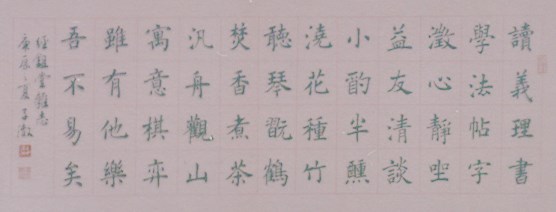 讀義理書
學法帖字
澂心靜坐
益友清談
小酌半醺
澆花種竹
聽琴翫鶴
焚香煮茶
汎舟觀山
寓意棋弈
雖有他樂
吾不易矣
經鉏堂雜志
庚辰夏子